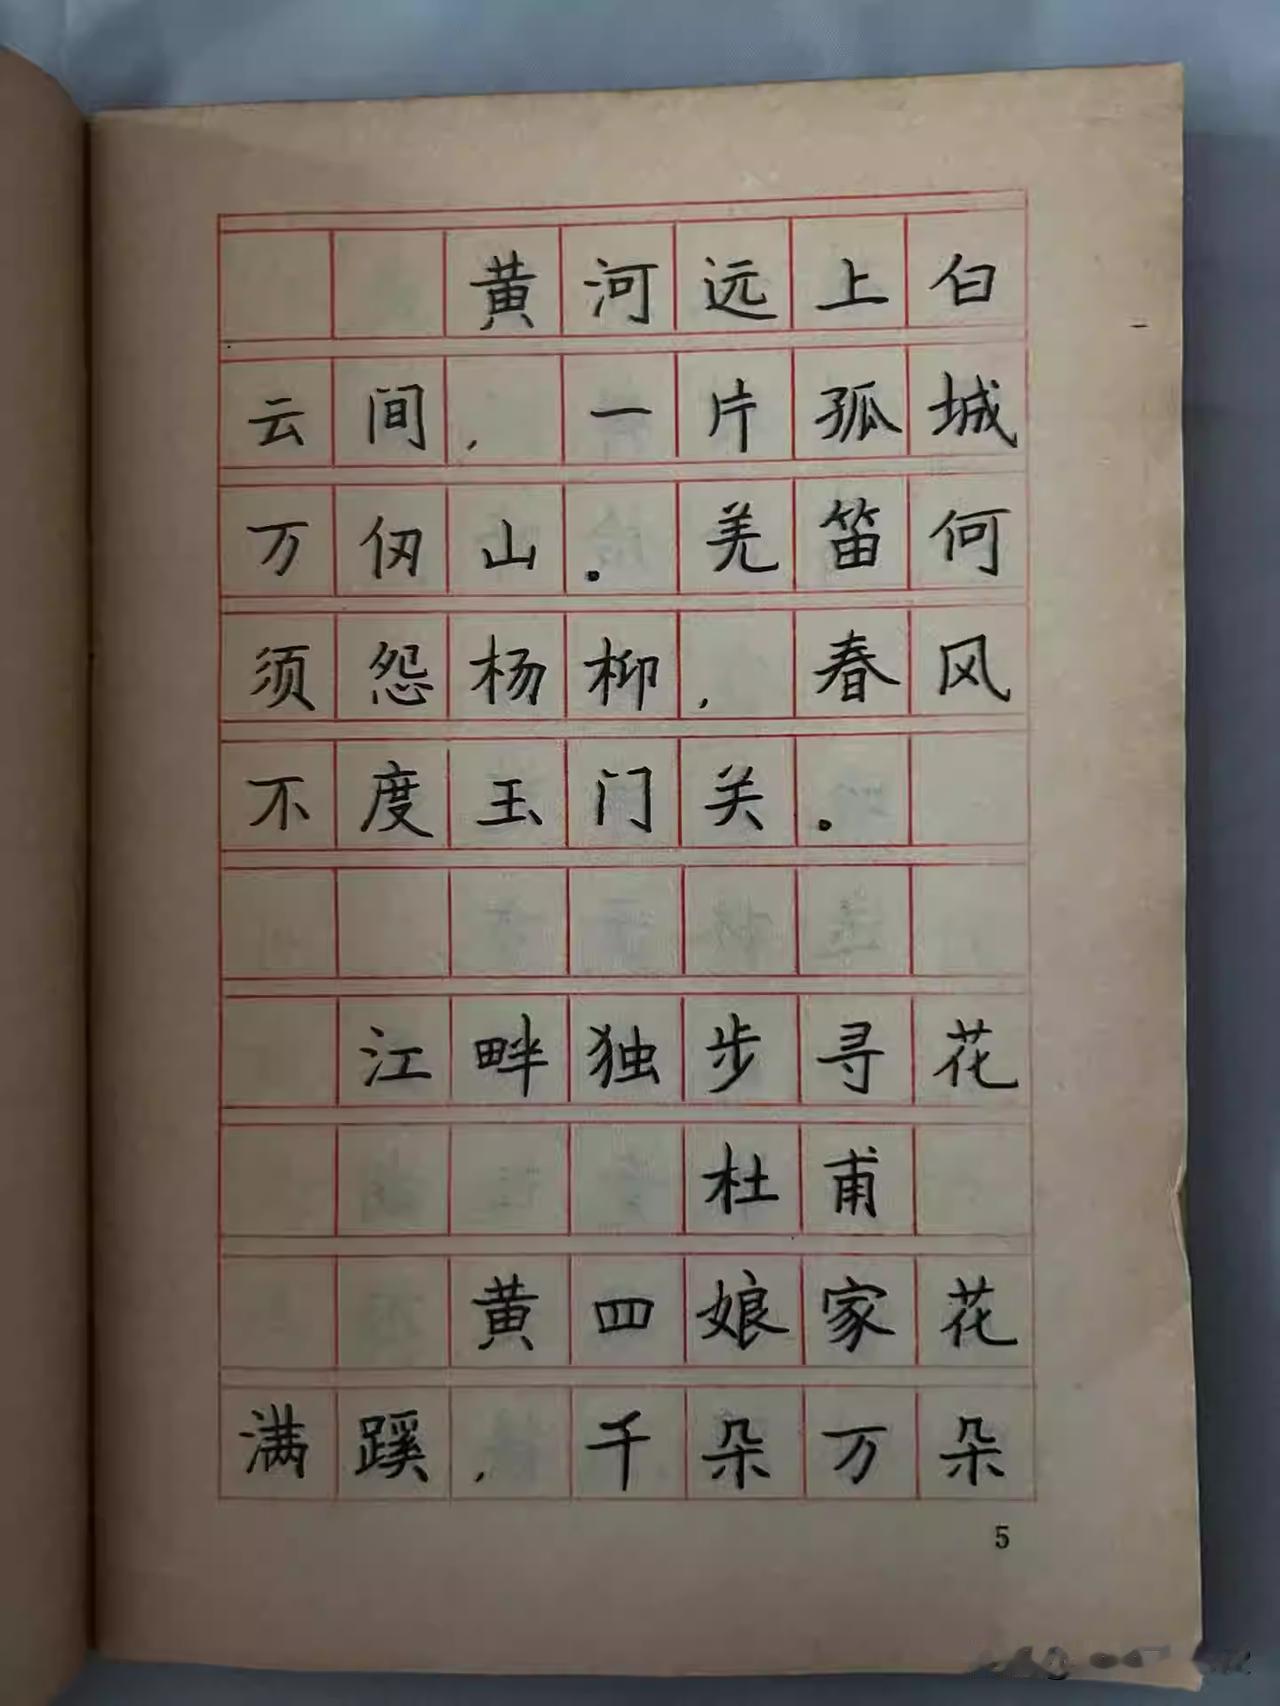 黄河远上白
云间，一片孤城
万仞山。羌笛何
须怨杨柳，春风
不度玉门关。
江畔独步寻花
杜甫
黄四娘家花
满蹊，千朵万朵
5